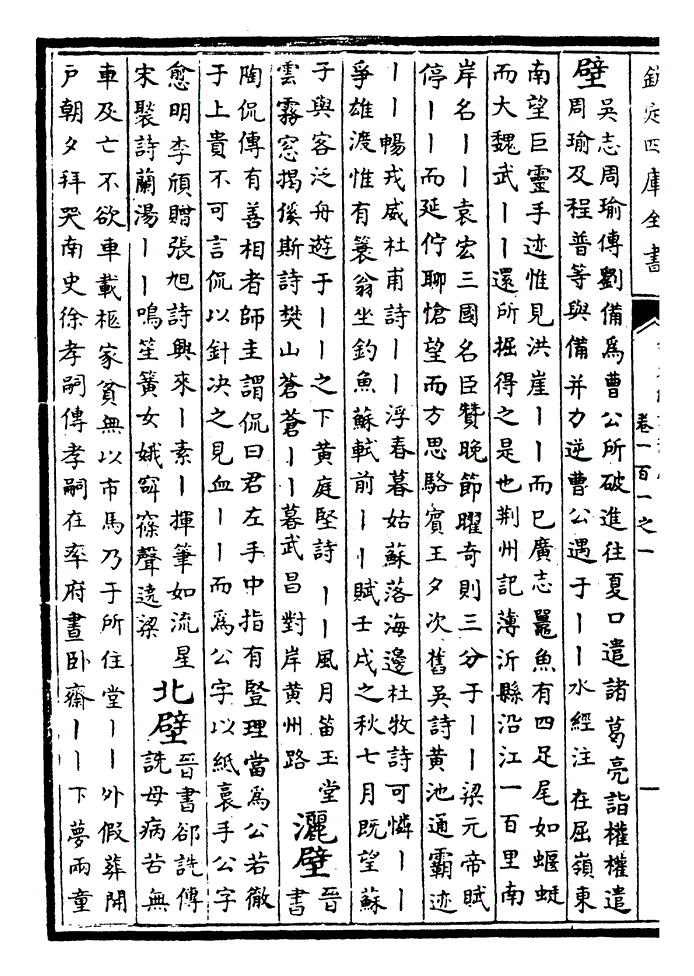 欽定四庫全書
卷一百一之一
一
壁
吳志周瑜傳劉備為曹公所破進往夏口遣諸葛亮詣權權遣
周瑜及程普等與備并力逆曹公遇于丨丨水經注 在屈嶺東
南望巨靈手迹惟見洪崖丨丨而已廣志鼉魚有四足尾如蝘蜓
而大魏武丨丨還所掘得之是也荆州記薄沂縣沿江一百里南
岸名丨丨袁宏三國名臣贊晚節曜奇則三分于丨丨梁元帝賦
停丨丨而延佇聊愴望而方思駱賓王夕次舊吳詩黄池通霸迹
丨丨暢戎威杜甫詩丨丨浮春暮姑蘇落海邊杜牧詩可憐丨丨
爭雄渡惟有蓑翁坐釣魚蘇軾前丨丨賦壬戌之秋七月既望蘇
子與客泛舟遊于丨丨之下黄庭堅詩 丨丨風月笛玉堂
雲霧窓揭傒斯詩樊山蒼蒼丨丨暮武昌對岸黄州路
灑壁
晉
書
陶侃傳有善相者師圭謂侃曰君左手中指有豎理當為公若徹
于上貴不可言侃以針决之見血丨丨而為公字以紙裛手公字
愈明李頎贈張旭詩興來丨素丨揮筆如流星
宋褧詩蘭湯丨丨鳴笙簧女娥窈窱聲遶梁
北壁
晉書郤詵傳
詵母病苦無
車及亡不欲車載柩家貧無以市馬乃于所住堂丨丨外假葬開
戸朝夕拜哭南史徐孝嗣傳孝嗣在率府晝卧齋丨丨下夢兩童